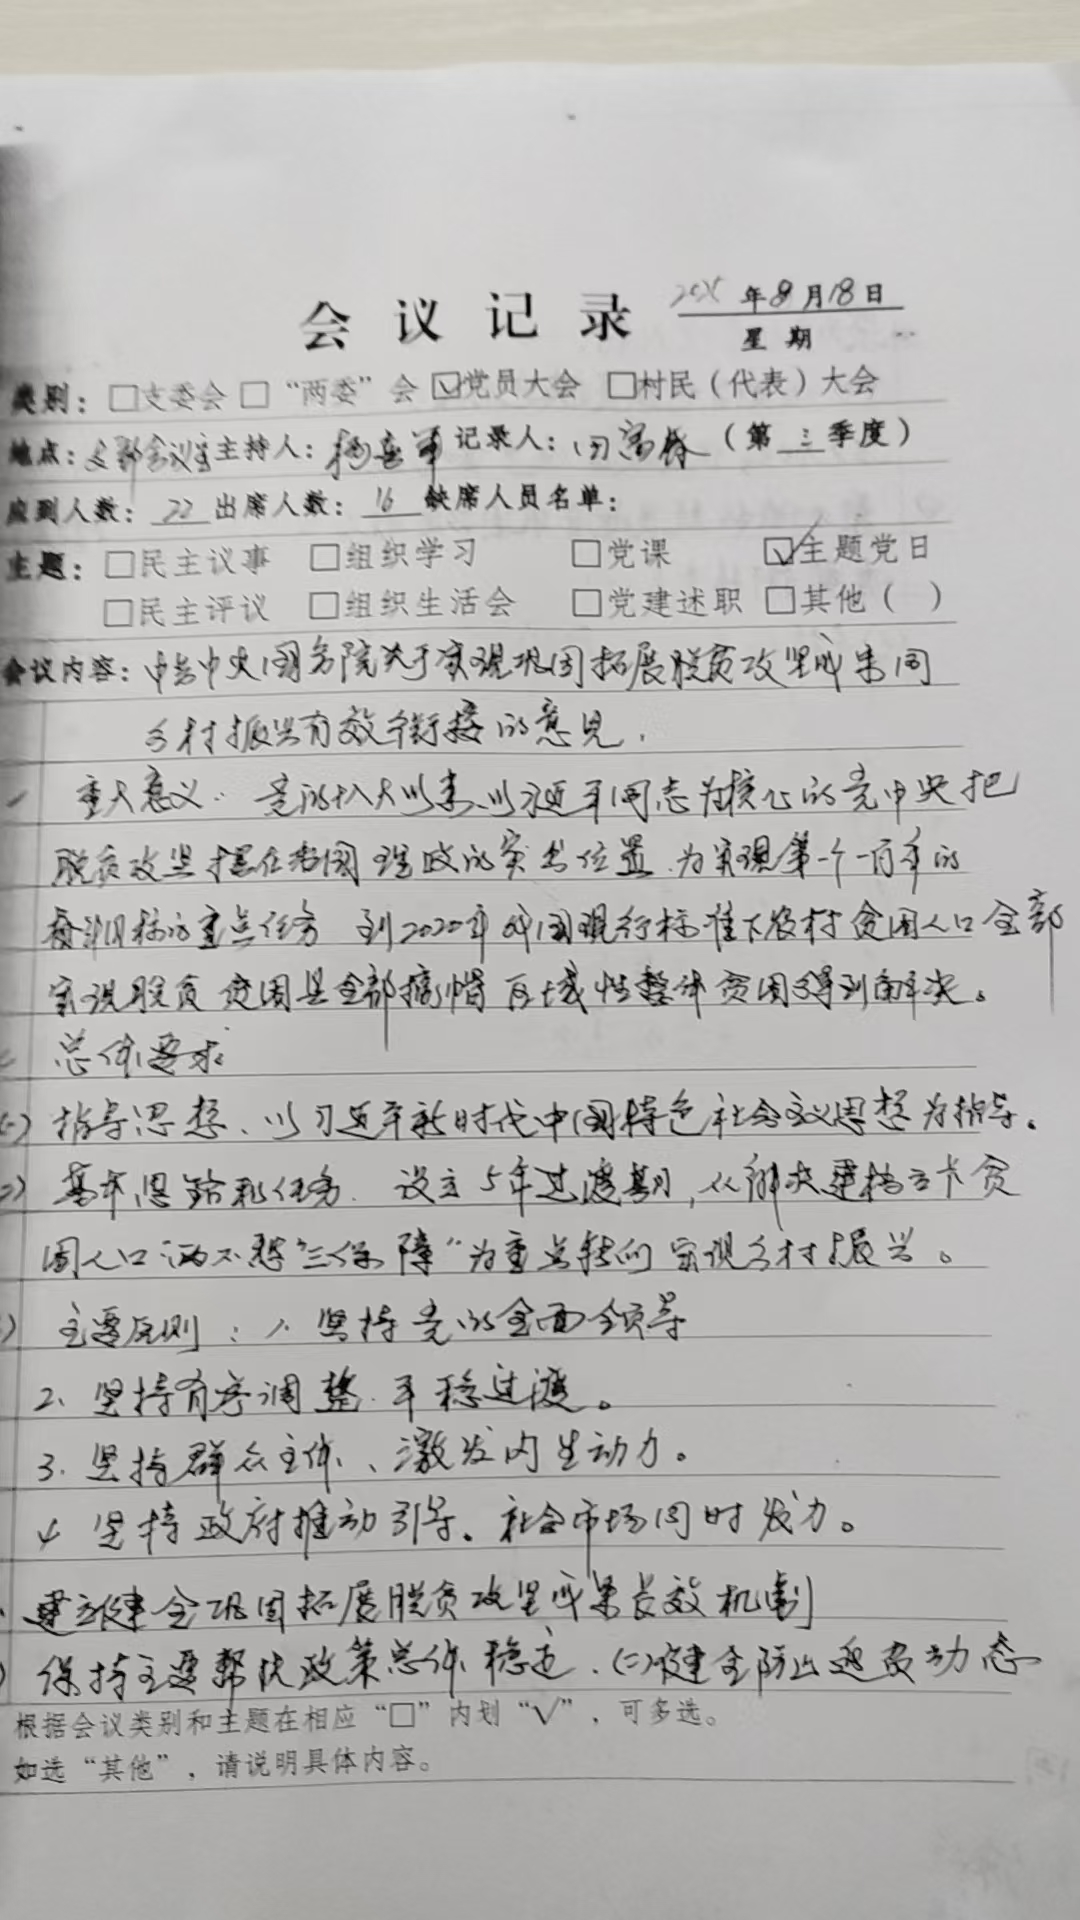 会议记录 年8月18日
星期
类别：□支委会 □“两委”会 ☑党员大会 □村民（代表）大会
地点：支部会议室 主持人： 记录人：田富春（第三季度）
应到人数：22 出席人数：16 缺席人员名单：
主题：□民主议事 □组织学习 □党课 ☑主题党日
□民主评议 □组织生活会 □党建述职 □其他（ ）
会议内容：中共中央国务院关于实现巩固拓展脱贫攻坚成果同
乡村振兴有效衔接的意见．
重大意义：党的十八大以来、以习近平同志为核心的党中央把
脱贫攻坚摆在治国理政的突出位置．为实现第一个一百年的
奋斗目标的重点任务 到2020年我国现行标准下农村贫困人口全部
实现脱贫 贫困县全部摘帽 区域性整体贫困得到解决。
总体要求
指导思想、以习近平新时代中国特色社会主义思想为指导。
基本思路和任务．设立5年过渡期，从解决建档立卡贫
困人口“两不愁”“三保障”为重点转向实现乡村振兴。
主要原则：1.坚持党的全面领导
2、坚持有序调整．平稳过渡。
3.坚持群众主体、激发内生动力。
4 坚持政府推动引导。社会市场同时发力。
建立健全巩固拓展脱贫攻坚成果长效机制
保持主要帮扶政策总体稳定．(二)健全防止返贫动态
根据会议类别和主题在相应“□”内划“√”，可多选。
如选“其他”，请说明具体内容。